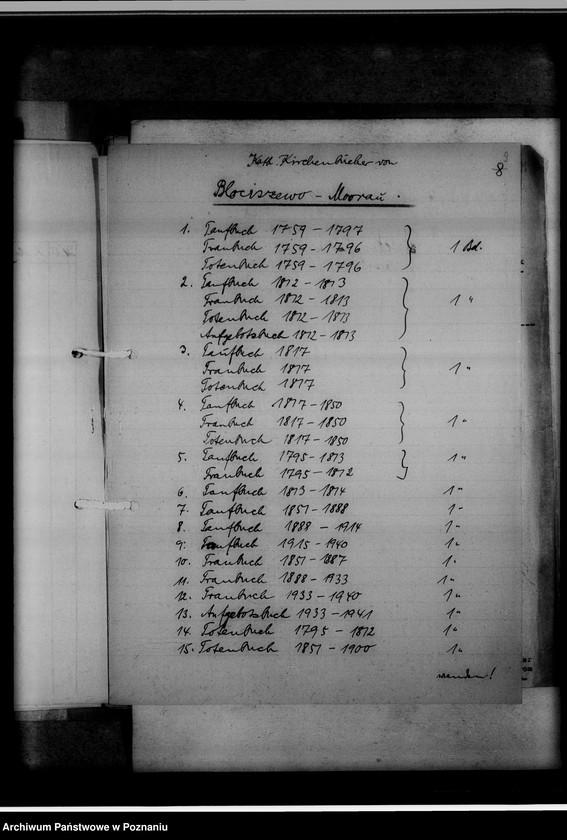 Kath. Kirchenbücher von
8
Blociszewo - Moorau.
1. Taufbuch 1759 - 1797
Traubuch 1759 - 1796 1 Bd.
Totenbuch 1759 - 1796
2. Taufbuch 1812 - 1813
Traubuch 1812 - 1813 1 "
Totenbuch 1812 - 1813
Aufgebotsbuch 1812 - 1813
3. Taufbuch 1817
Traubuch 1817 1 "
Totenbuch 1817
4. Taufbuch 1817 - 1850
Traubuch 1817 - 1850 1 "
Totenbuch 1817 - 1850
5. Taufbuch 1795 - 1813 1 "
Traubuch 1795 - 1812
6. Taufbuch 1813 - 1814 1 "
7. Taufbuch 1851 - 1888 1 "
8. Taufbuch 1888 - 1914 1 "
9. Taufbuch 1915 - 1940 1 "
10. Traubuch 1851 - 1887 1 "
11. Traubuch 1888 - 1933 1 "
12. Traubuch 1933 - 1940 1 "
13. Aufgebotsbuch 1933 - 1941 1 "
14. Totenbuch 1795 - 1812 1 "
15. Totenbuch 1851 - 1900 1 "
wenden!
Archiwum Państwowe w Poznaniu